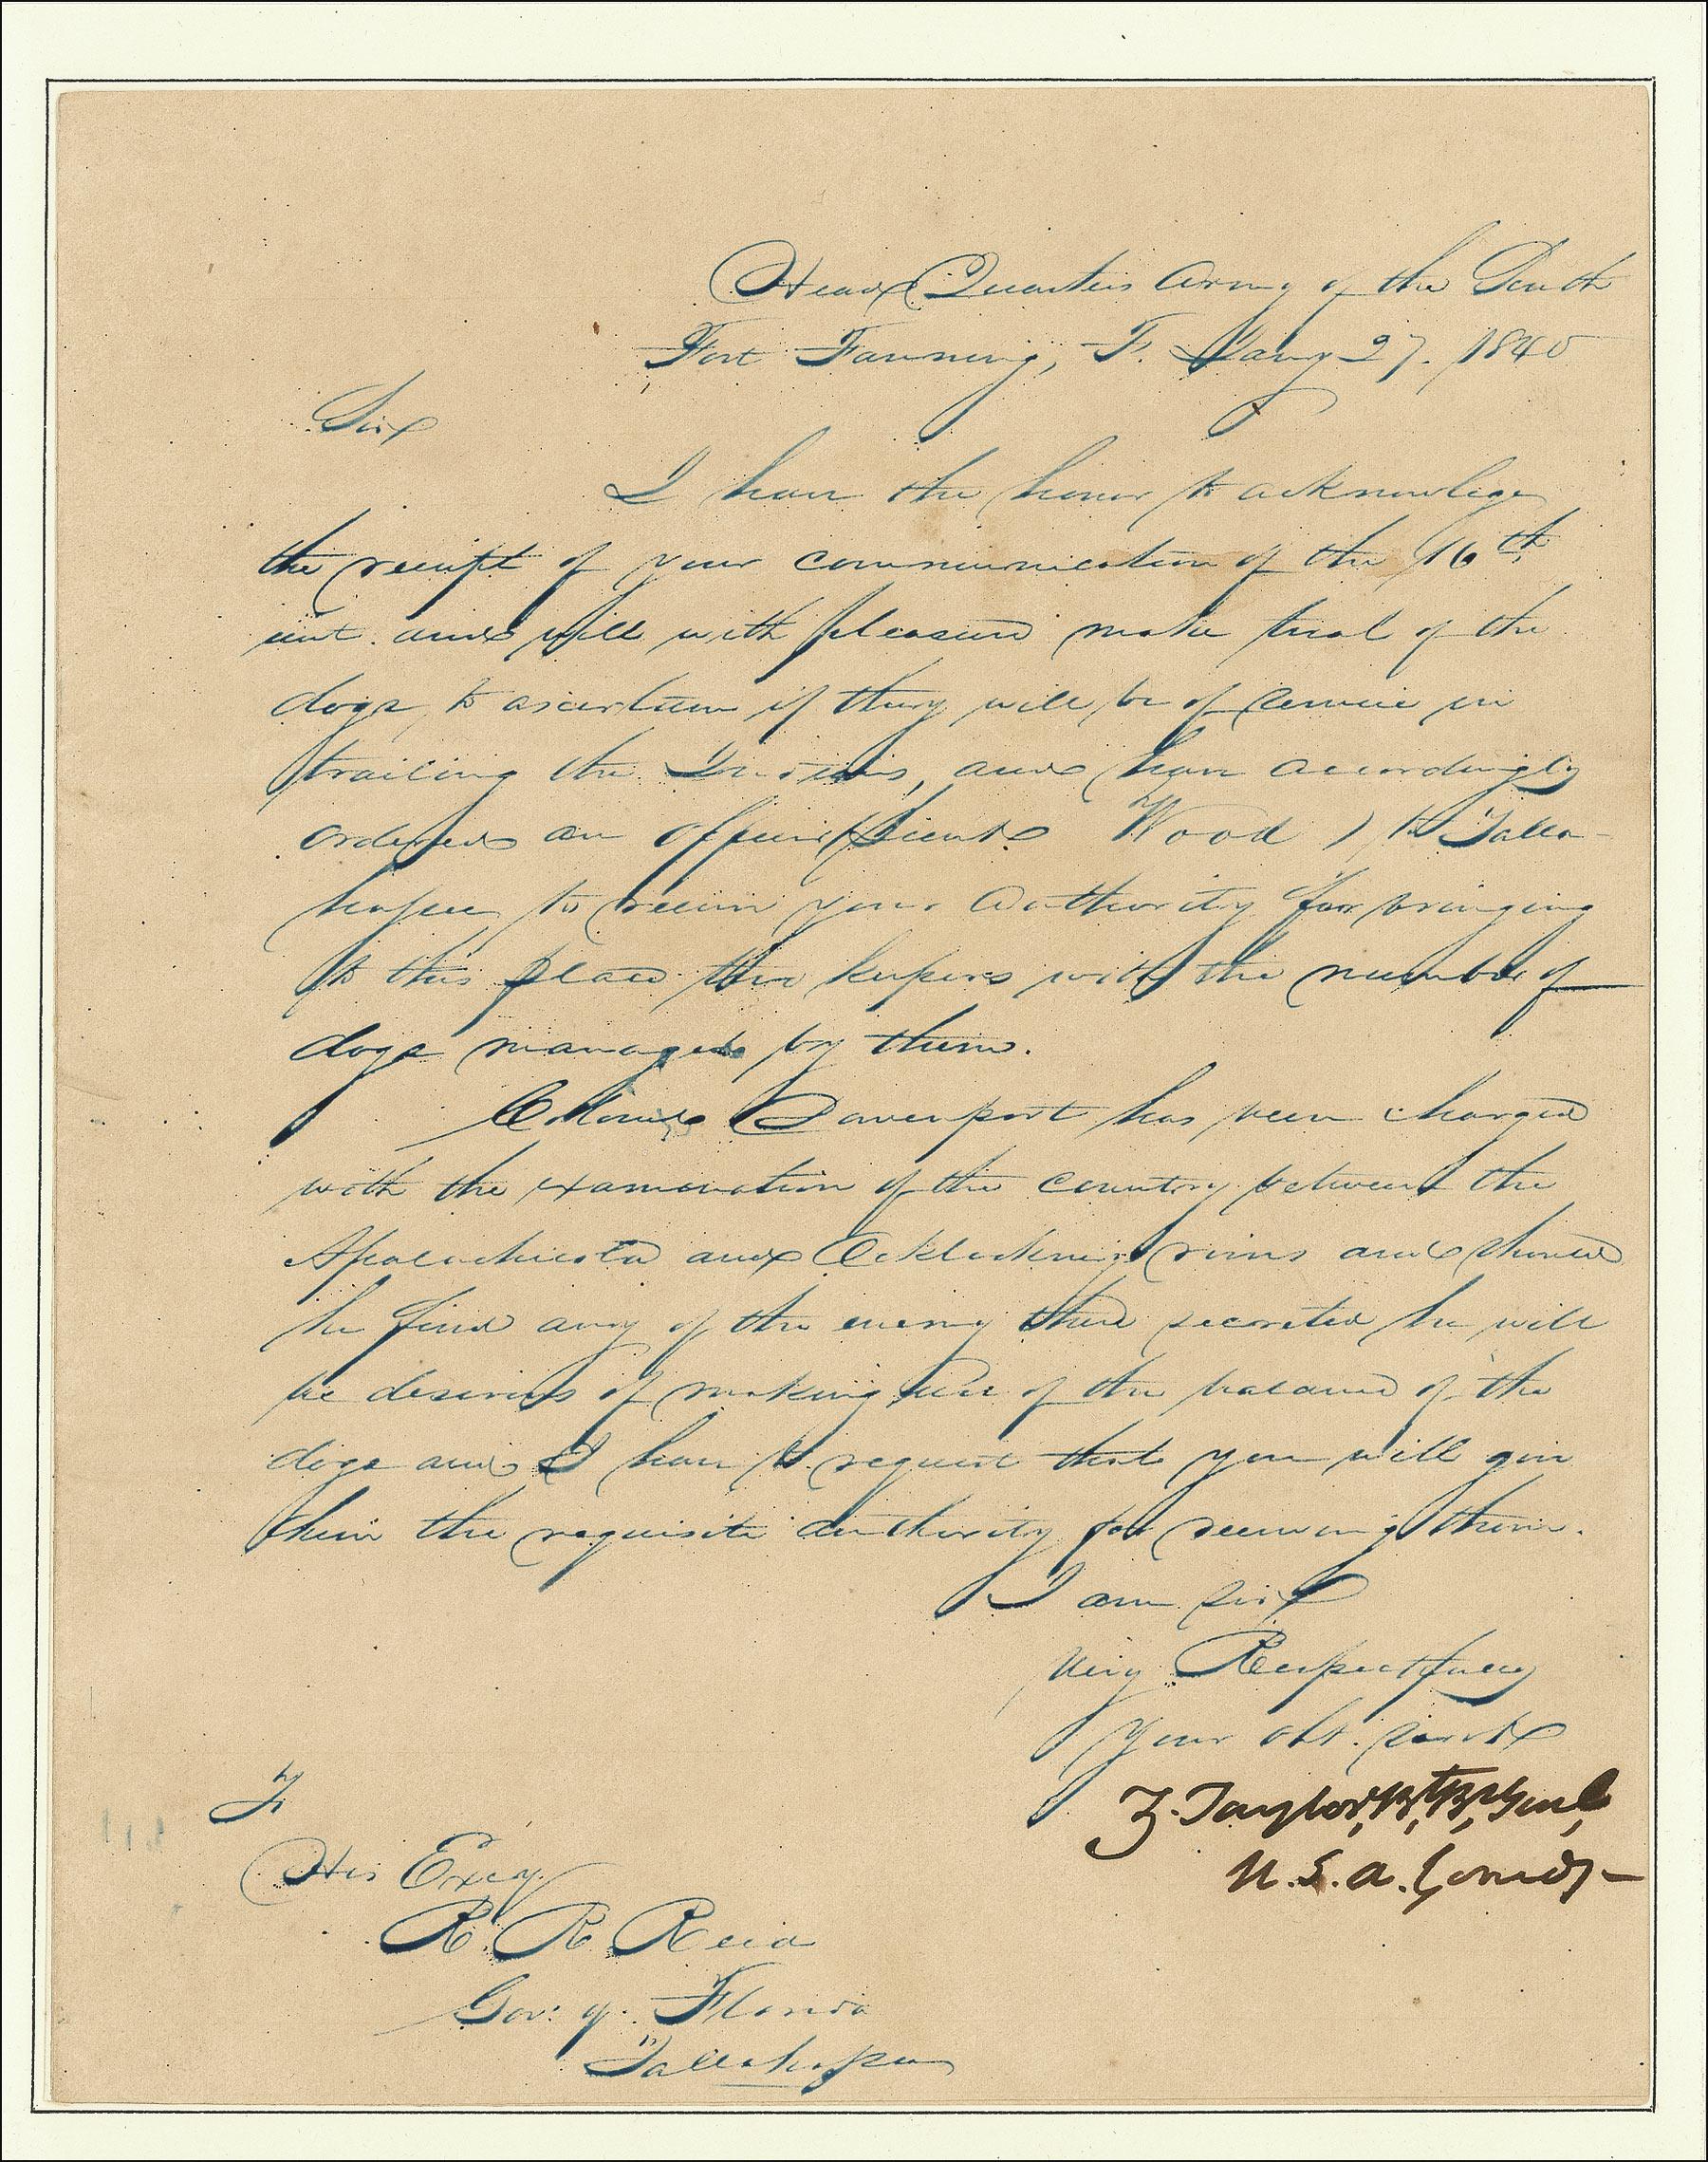 Head Quarters Army of the South
Fort Fanning, F. Jany 27. 1840
Sir
I have the honor to acknowlege
the receipt of your communication of the 16th
inst. and will with pleasure make trial of the
dogs, to ascertain if they will be of service in
trailing the Indians, and have accordingly
ordered an officer (Lieut. Wood ) to Talla-
hassee to receive your authority for bringing
to this place two keepers with the number of
dogs managed by them.
Colonel Davenport has been charged
with the examination of the country between the
Apalachicola and Ocklockney rivers and should
he find any of the enemy there secreted he will
be desirous of making use of the balance of the
dogs and I have to request that you will give
him the requisite authority for receiving them.
I am Sir
Very Respectfully
Your obt. servt
Z. Taylor, Bt. Br. Genl,
U.S.A. Comdg
To
His Excy.
R. R. Reid
Gov: of Florida
Tallahassee